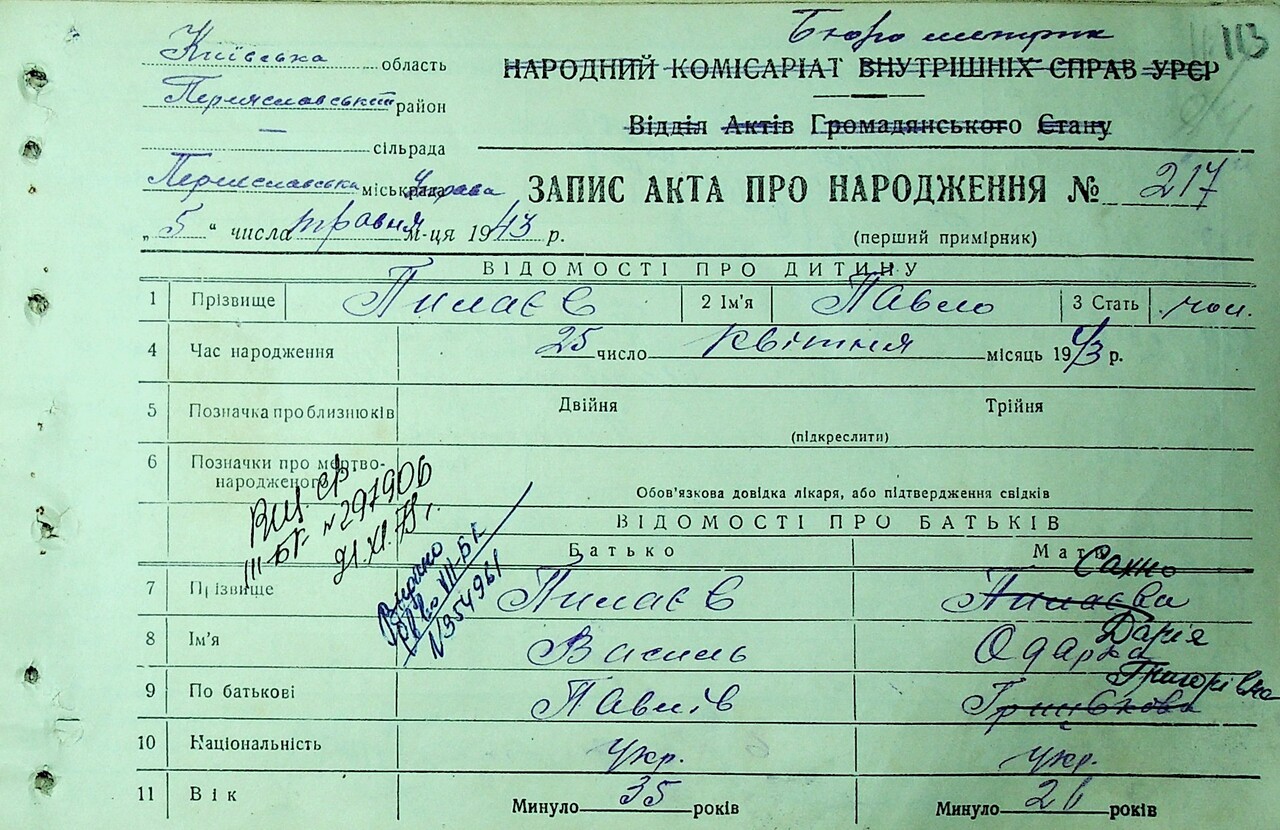 Бюро метрик
113
Київська область
НАРОДНИЙ КОМІСАРІАТ ВНУТРІШНІХ СПРАВ УРСР
Переяславський район
Відділ Актів Громадянського Стану
— сільрада
Переяславська міськрада Управа
ЗАПИС АКТА ПРО НАРОДЖЕННЯ № 217
„ 5 “ числа травня м-ця 1943 р.
(перший примірник)
ВІДОМОСТІ ПРО ДИТИНУ
1 Прізвище Пилаєв 2 Ім'я Павло 3 Стать чол.
4 Час народження 25 число квітня місяць 1943 р.
5 Позначка про близнюків Двійня Трійня
(підкреслити)
6 Позначки про мертво-
народженого
Обов'язкова довідка лікаря, або підтвердження свідків
III-БК №297906
21.XI.79 г.
Видано
VII-БК
N354961
ВІДОМОСТІ ПРО БАТЬКІВ
Батько Мати
Сахно
7 Прізвище Пилаєв Пилаєва
Дарія
8 Ім'я Василь Одарка
Григорівна
9 По батькові Павлів Грицькова
10 Національність укр. укр.
11 Вік Минуло 35 років Минуло 26 років